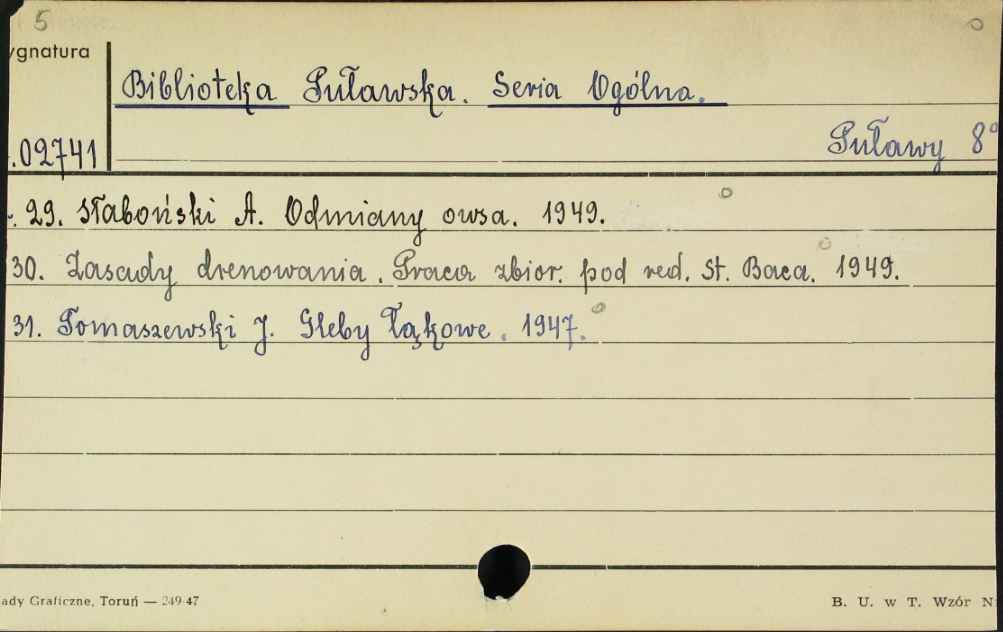 5
ygnatura
Biblioteka Puławska. Seria Ogólna.
.02741
Puławy 8°
29. Słaboński A. Odmiany owsa. 1949.
30. Zasady drenowania. Praca zbior. pod red. St. Baca. 1949.
31. Tomaszewski J. Gleby łąkowe. 1947.
ady Graficzne, Toruń — 249-47
B. U. w T. Wzór N